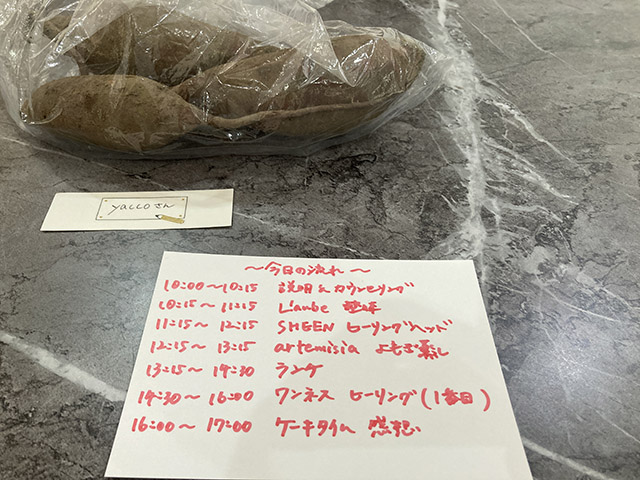 yaccoさん
〜今日の流れ〜
10:00〜10:15 説明&カウンセリング
10:15〜11:15 L'aube
11:15〜12:15 SHEEN ヒーリングヘッド
12:15〜13:15 artemisia よもぎ蒸し
13:15〜14:30 ランチ
14:30〜16:00 ワンネス ヒーリング(1番目)
16:00〜17:00 ケーキタイム 感想